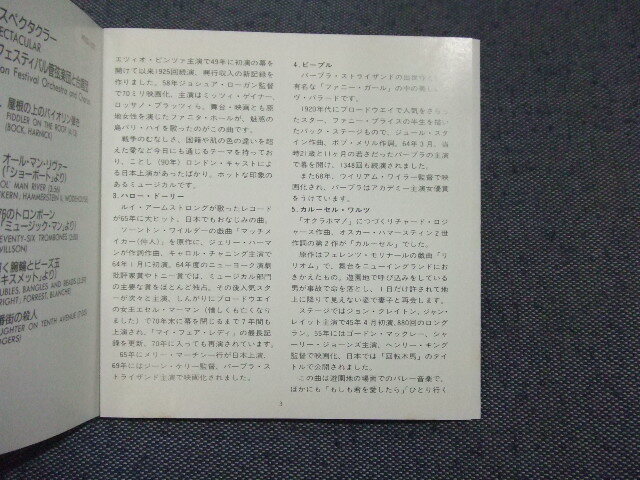 スペクタクラー
ECTACULAR
フェスティバル管弦楽団と合唱団
an Festival Orchestra and Chorus
屋根の上のバイオリン弾き
FIDDLER ON THE ROOF
(BOCK, HARNICK)
オール・マン・リヴァー
(「ショーボート」より)
OL' MAN RIVER (3:56)
KERN, HAMMERSTEIN II, WODEHOUSE
76のトロンボーン
「ミュージック・マン」より)
SEVENTY-SIX TROMBONES
WILLSON)
く腕輪とビーズ玉
キスメット」より)
UBLES, BANGLES AND BEADS
RIGHT, FORREST, BLANCHE)
番街の殺人
AUGHTER ON TENTH AVENUE
GERS)
エツィオ・ピンツァ主演で49年に初演の幕を
開けて以来1925回続演、興行収入の新記録を
作りました。58年ジョシュア・ローガン監督
で70ミリ映画化、主演はミッツィ・ゲイナー、
ロッサノ・ブラッツィら。舞台・映画とも原
地女性を演じたファニタ・ホールが、魅惑の
島バリ・ハイを歌ったのがこの曲です。
戦争のむなしさ、国籍や肌の色の違いを超
えた愛など今日にも通じるテーマを持ってお
り、ことし（90年）ロンドン・キャストによ
る日本上演があったばかり。ホットな印象の
あるミュージカルです。
3.ハロー・ドーリー
ルイ・アームストロングが歌ったレコード
が65年に大ヒット、日本でもおなじみの曲。
ソーントン・ワイルダーの戯曲「マッチメ
イカー(仲人)」を原作に、ジェリー・ハーマ
ンが作詞作曲、キャロル・チャニング主演で
64年1月に初演。64年度のニューヨーク演劇
批評家賞やトニー賞では、ミュージカル部門
の主要な賞をほとんど独占。その後人気スタ
ーが次々と主演、しんがりにブロードウエイ
の女王エセル・マーマン（惜しくも亡くなり
ました）で70年末に幕を閉じるまで7年間も
上演され、「マイ・フェア・レディ」の最長記
録を更新、70年に入っても再演されています。
65年にメリー・マーチン一行が日本上演、
69年にはジーン・ケリー監督、バーブラ・ス
トライザンド主演で映画化されました。
4.ピープル
バーブラ・ストライザンドの出世作
有名な「ファニー・ガール」の中の美しい
ヴ・バラードです。
1920年代にブロードウエイで人気をさらっ
たスター、ファニー・ブライスの半生を描い
たバック・ステージもので、ジュール・スタ
イン作曲、ボブ・メリル作詞。64年3月、当
時21歳と11ヶ月の若さだったバーブラの主演
で幕を開け、1348回も続演されました。
また68年、ウイリアム・ワイラー監督で映
画化され、バーブラはアカデミー主演女優賞
をうけています。
5.カルーセル・ワルツ
「オクラホマ！」につづくリチャード・ロジ
ャース作曲、オスカー・ハマースティン2世
作詞の第2作が「カルーセル」でした。
原作はフェレンツ・モリナールの戯曲「リ
リオム」で、舞台をニューイングランドにお
きかえたもの。遊園地で呼び込みをしている
男が事故で命を落とし、1日だけ許されて地
上に降りて見えない姿で妻子と再会します。
ステージではジョン・クレイトン、ジャン・
レイット主演で45年4月初演、880回のロング
ラン。55年にはゴードン・マックレー、シャ
ーリー・ジョーンズ主演、ヘンリー・キング
監督で映画化、日本では「回転木馬」のタイ
トルで公開されました。
この曲は遊園地の場面でのバレー音楽で、
ほかにも「もしも君を愛したら」「ひとり行く
3